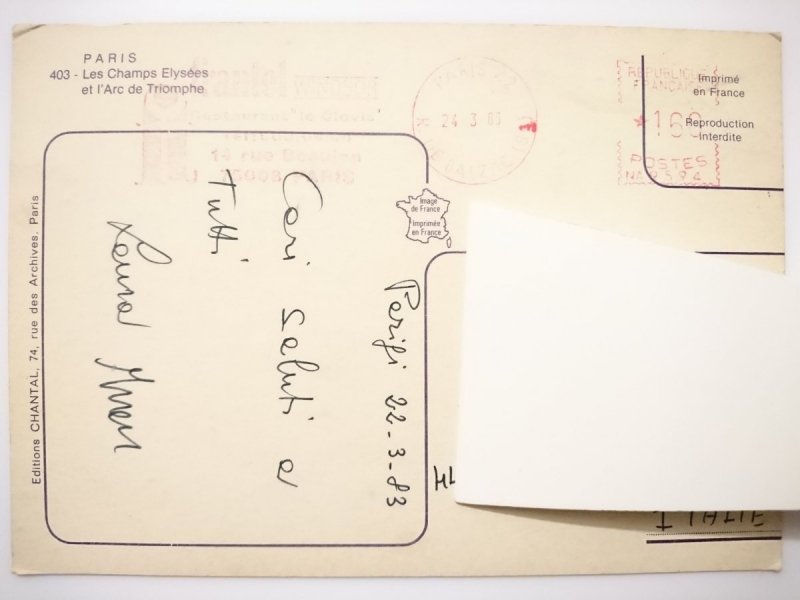 PARIS
403 - Les Champs Elysées
et l'Arc de Triomphe
Restaurant "le Clovis"
14 rue Beaujon
75008 PARIS
PARIS
24 3 83
REPUBLIQUE
FRANÇAISE
160
POSTES
Imprimé
en France
Reproduction
Interdite
Image
de France
Imprimée
en France
Editions CHANTAL, 74, rue des Archives, Paris
Parigi 22-3-83
Cari saluti a
tutti
ITALIE